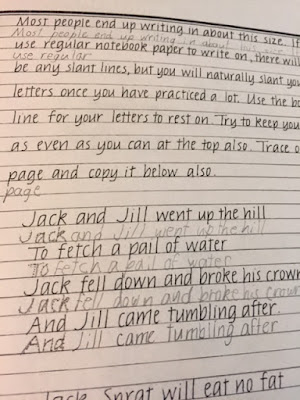 Most people end up writing in about this size. If
Most people end up writing in about this size.
use regular notebook paper to write on, there will
use regular
be any slant lines, but you will naturally slant you
letters once you have practiced a lot. Use the
line for your letters to rest on. Try to keep you
as even as you can at the top also. Trace
page and copy it below also.
page
Jack and Jill went up the hill
Jack and Jill went up the hill
To fetch a pail of water
To fetch a pail of water
Jack fell down and broke his crown
Jack fell down and broke his crown
And Jill came tumbling after.
And Jill came tumbling after
Jack Sprat will eat no fat